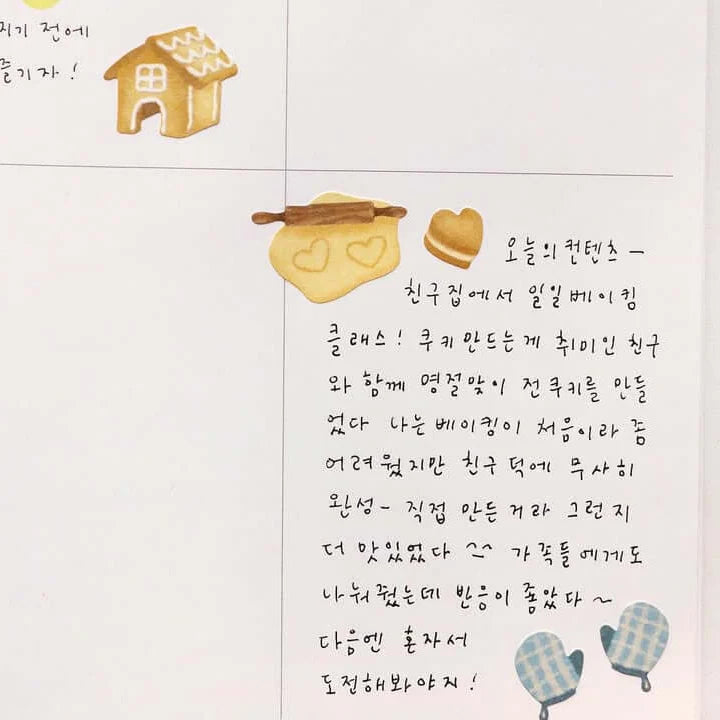 지기 전에
즐기자!
오늘의 컨텐츠 -
친구집에서 일일베이킹
클래스! 쿠키 만드는게 취미인 친구
와 함께 명절맞이 전쿠키를 만들
었다 나는 베이킹이 처음이라 좀
어려웠지만 친구덕에 무사히
완성- 직접 만든거라 그런지
더 맛있었다 ^^ 가족들에게도
나눠줬는데 반응이 좋았다~
다음엔 혼자서
도전해봐야지!